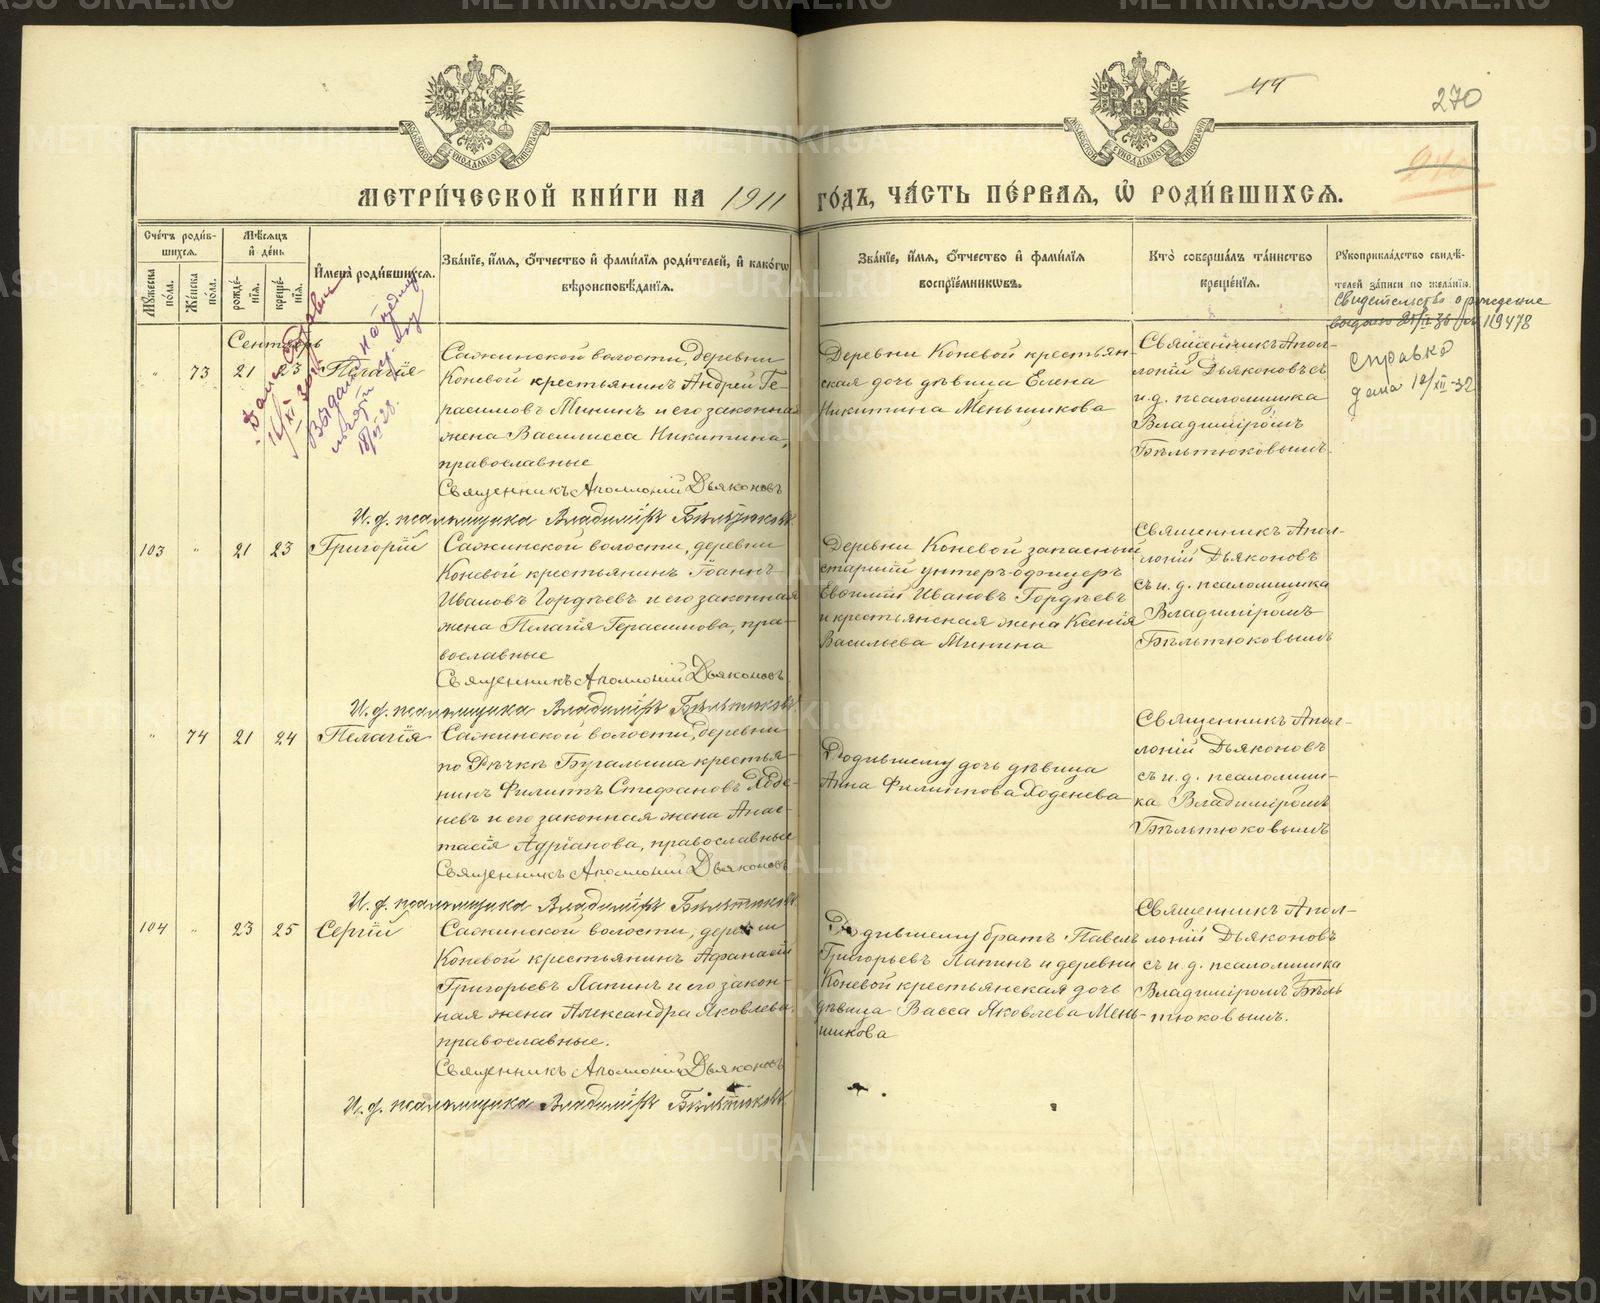 44
270
МЕТРИ́ЧЕСКОЙ КНИ́ГИ НА 1911 ГО́ДЪ, ЧА́СТЬ ПЕ́РВАѦ, Ѽ РОДИ́ВШИХСѦ.
Сче́тъ роди́в-
шихсѧ.
Мꙋ́жеска по́ла.
Же́нска по́ла.
Мѣ́сѧцъ
и҆ де́нь
рожде́-
нїѧ.
креще́-
нїѧ.
И҆мена̀ роди́вшихсѧ.
Зва́нїе, и҆́мѧ, ѻ҆́тчество и҆ фами́лїѧ роди́телей, и҆ како́гѡ
вѣроисповѣ́данїѧ.
Зва́нїе, и҆́мѧ, ѻ҆́тчество и҆ фами́лїѧ
воспрїе́мникѡвъ.
Кто̀ соверша́лъ та́инство
креще́нїѧ.
Рꙋкоприкла́дство свидѣ́-
телей за́писи по жела́нїю.
Свидетельство о рождение
выдано 119478
Справка
дана 12/XII-32
Сентябрь
" 73 21 23 Пелагія
Сажинской волости, деревни
Коневой крестьянинъ Андрей Ге-
расимовъ Мининъ и его законная
жена Василисса Никитина,
православные
Священникъ Аполлоній Дьяконовъ
И. д. псаломщика Владиміръ Бѣльтюковъ
Деревни Коневой крестьян-
ская дочь дѣвица Елена
Никитина Меньшикова
Священникъ Апол-
лоній Дьяконовъ съ
и. д. псаломщика
Владиміромъ
Бѣльтюковымъ.
103 " 21 23 Григорій
Сажинской волости, деревни
Коневой крестьянинъ Іоаннъ
Ивановъ Гордѣевъ и его законная
жена Пелагія Герасимова, пра-
вославные
Священникъ Аполлоній Дьяконовъ
И. д. псаломщика Владиміръ Бѣльтюковъ
Деревни Коневой запасный
старшій унтеръ-офицеръ
Евфимій Ивановъ Гордѣевъ
и крестьянская жена Ксенія
Васильева Минина
Священникъ Апол-
лоній Дьяконовъ
съ и. д. псаломщика
Владиміромъ
Бѣльтюковымъ
" 74 21 24 Пелагія
Сажинской волости, деревни
по Рѣчкѣ Бугалыша крестья-
нинъ Филиппъ Стефановъ Ходе-
невъ и его законная жена Анас-
тасія Адріанова, православные
Священникъ Аполлоній Дьяконовъ
И. д. псаломщика Владиміръ Бѣльтюковъ
Родившему дочь дѣвица
Анна Филиппова Ходенева
Священникъ Апол-
лоній Дьяконовъ
съ и. д. псаломщи-
ка Владиміромъ
Бѣльтюковымъ
104 " 23 25 Сергій
Сажинской волости, деревни
Коневой крестьянинъ Афанасій
Григорьевъ Лапинъ и его закон-
ная жена Александра Яковлева
православные.
Священникъ Аполлоній Дьяконовъ
И. д. псаломщика Владиміръ Бѣльтюковъ
Родившему братъ Павелъ
Григорьевъ Лапинъ и деревни
Коневой крестьянская дочь
дѣвица Васса Яковлева Мень-
шикова
Священникъ Апол-
лоній Дьяконовъ
съ и. д. псаломщика
Владиміромъ Бѣль
тюковымъ.
METRIKI.GASO-URAL.RU